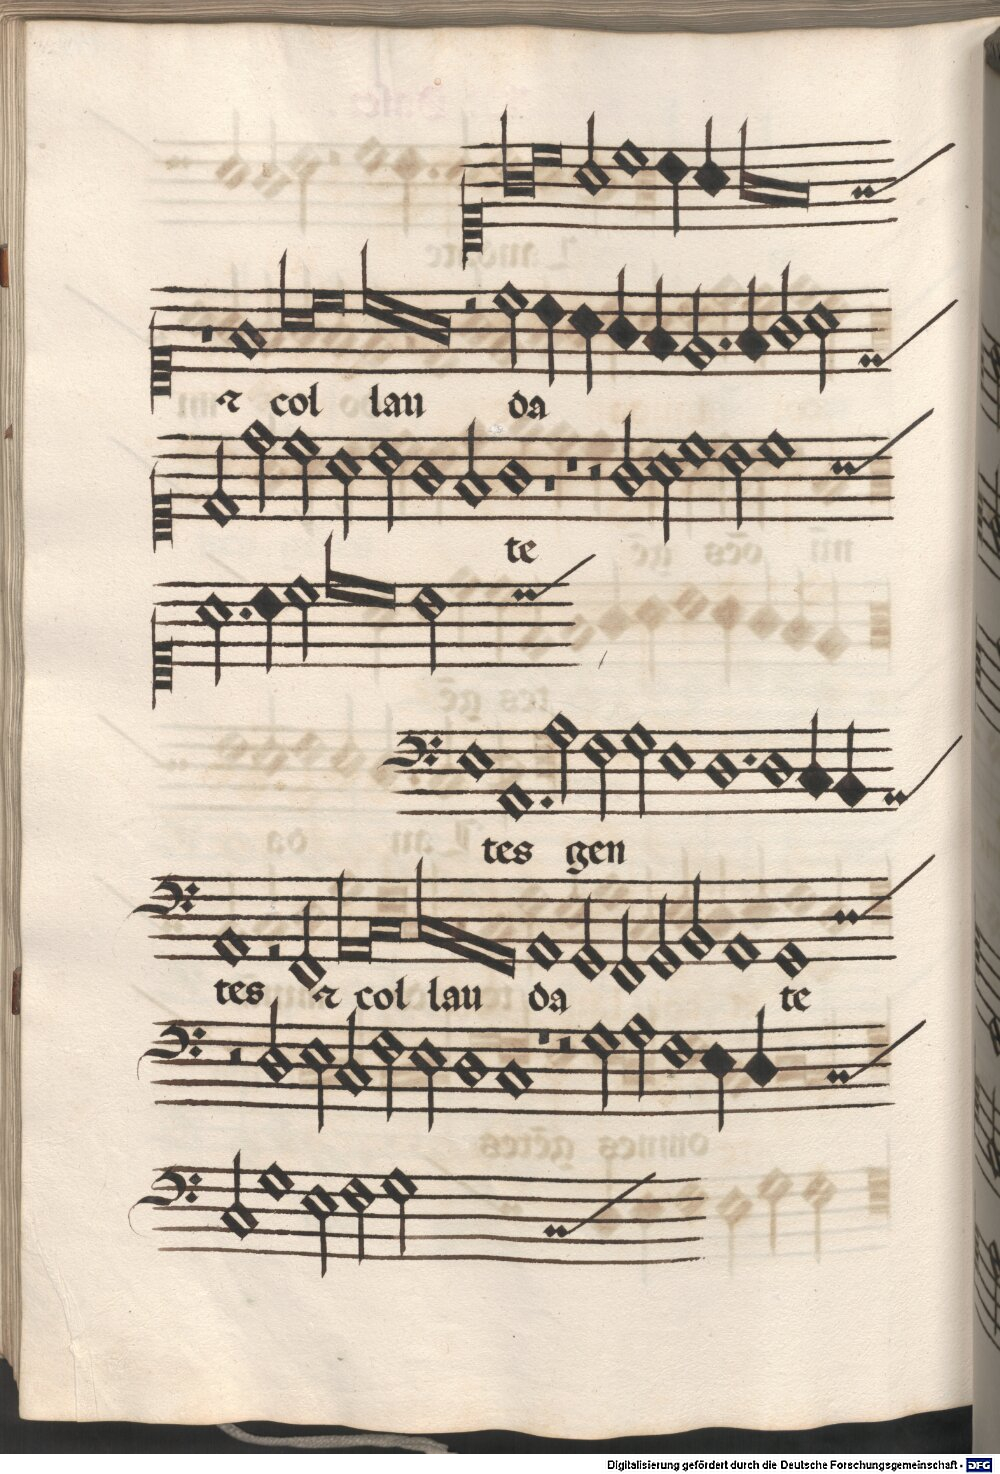 ⁊ col lau da
te
tes gen
tes ⁊ col lau da te
Digitalisierung gefördert durch die Deutsche Forschungsgemeinschaft - DFG